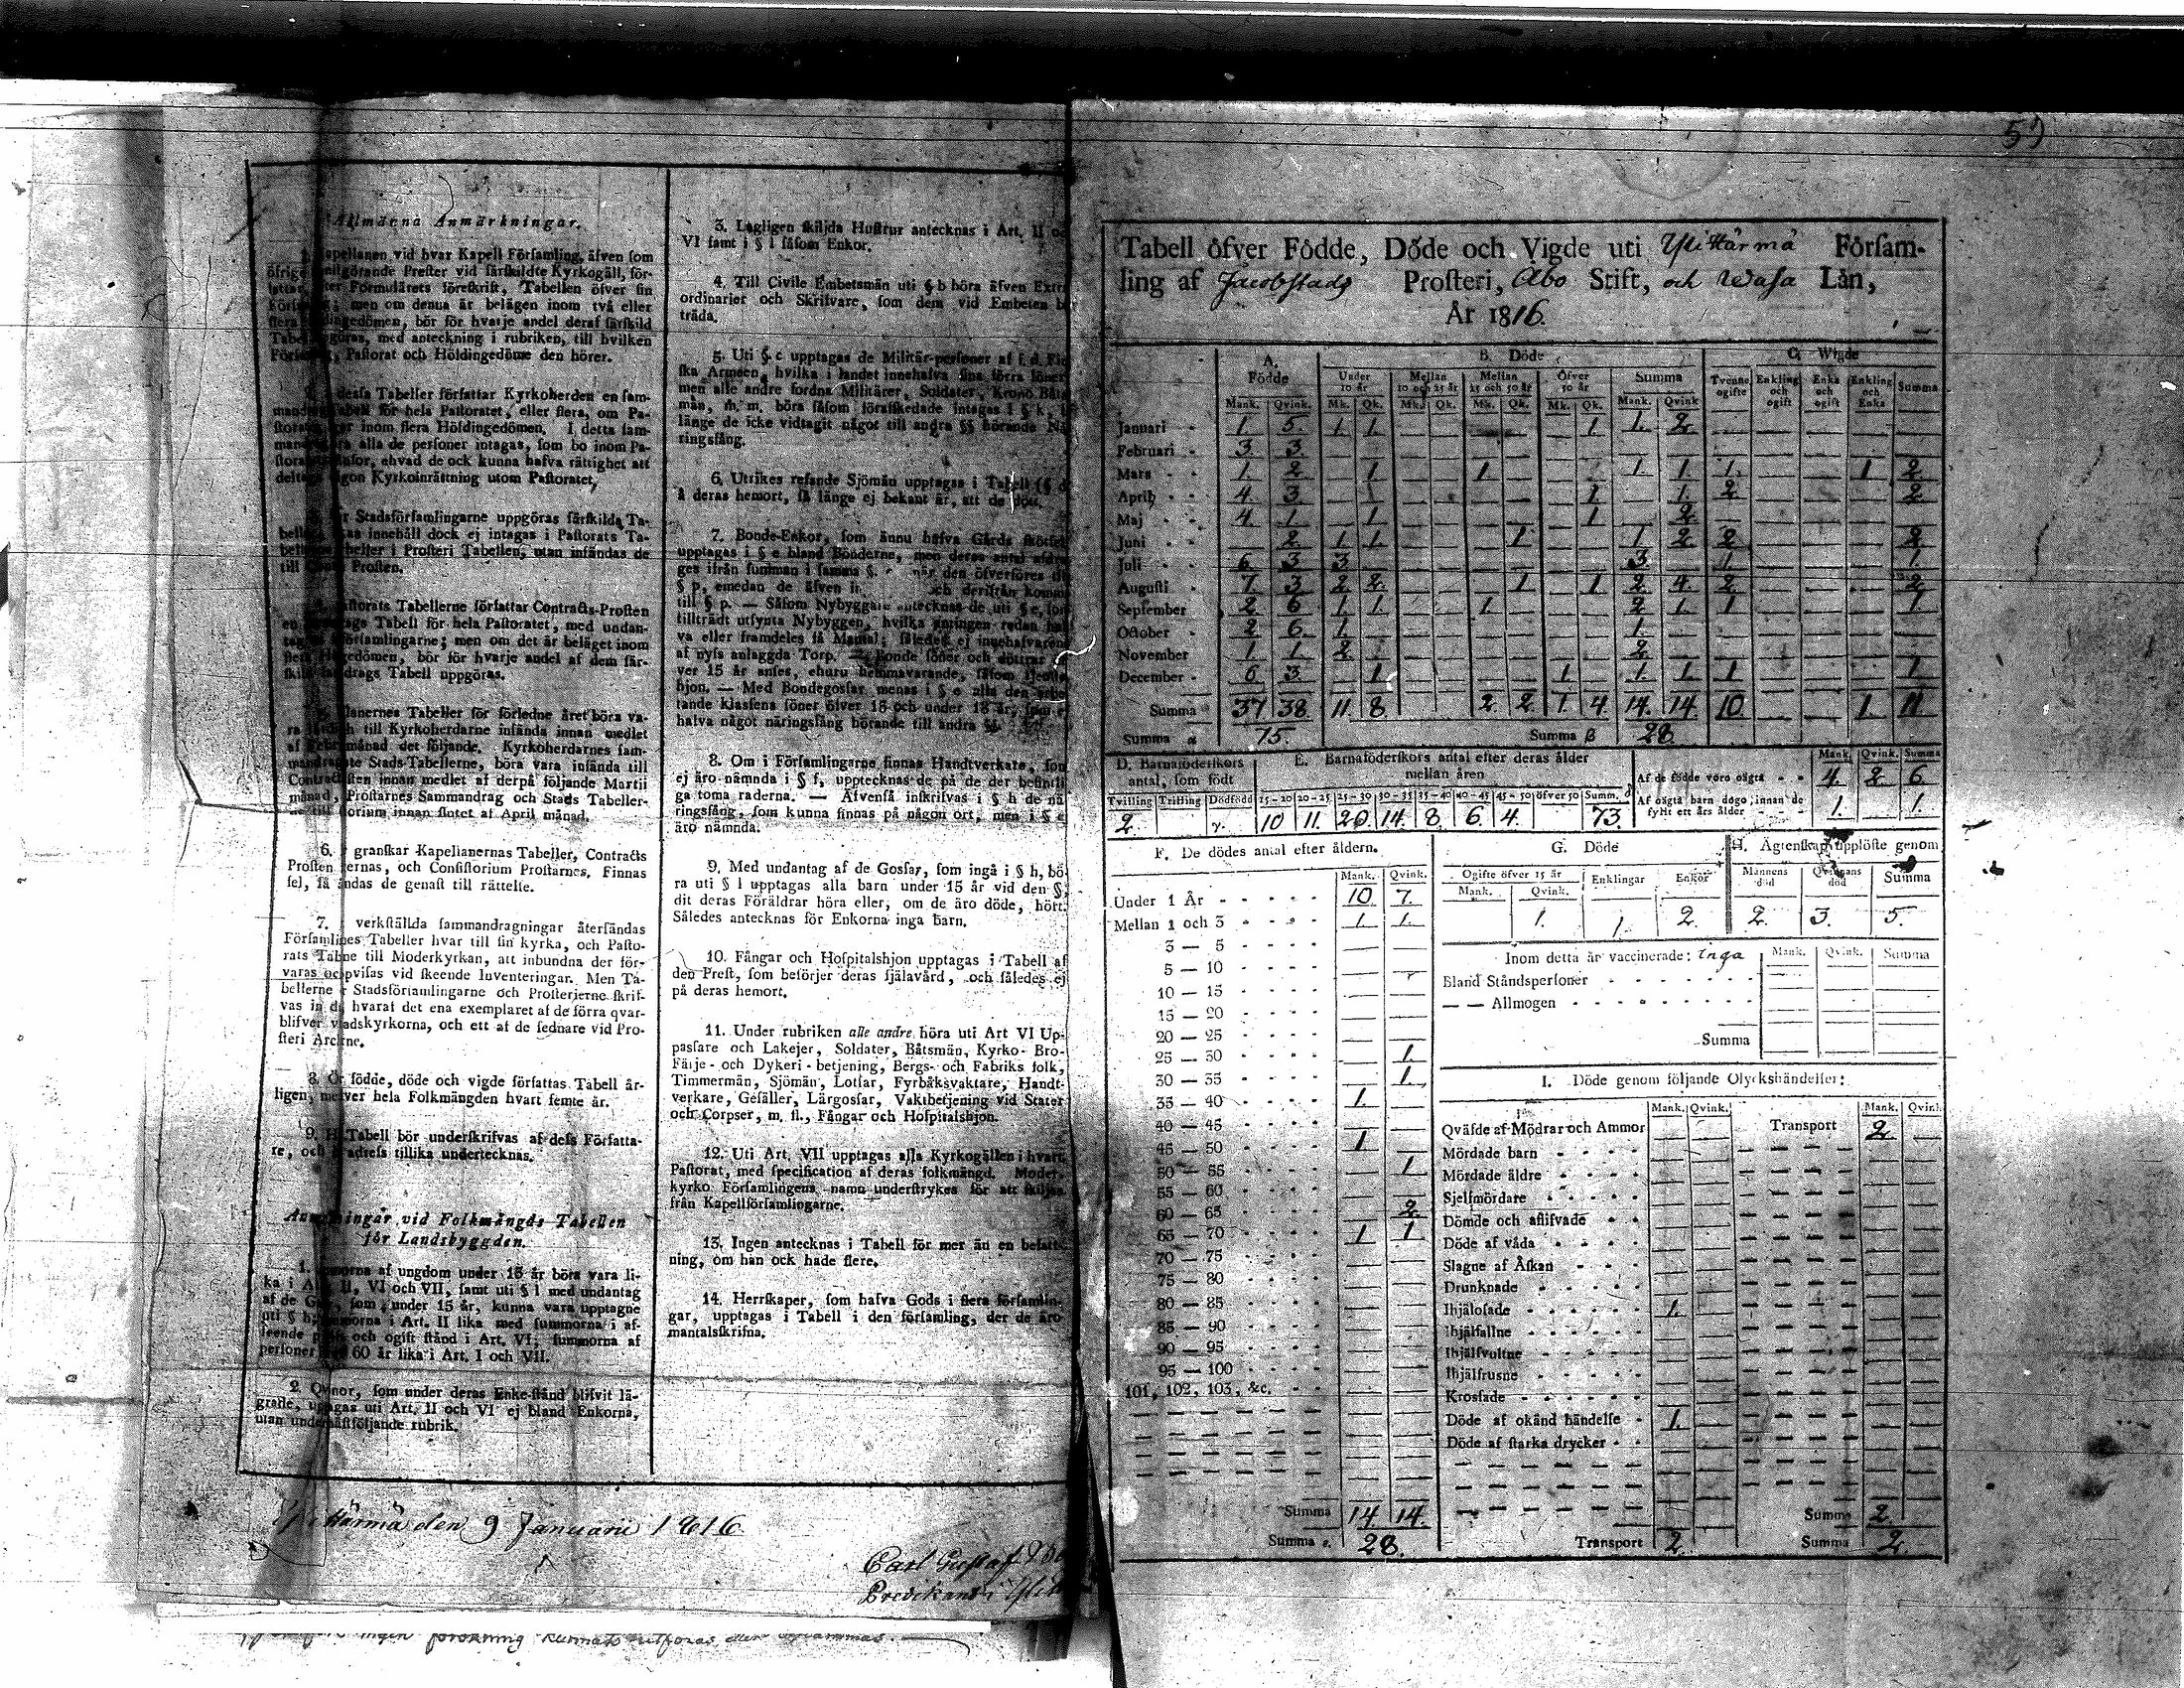 Allmänna Anmärkningar.
vid hvar Kapell Församling, äfven som
Prester vid särskildte Kyrkogäll, för-
Formulärets föreskrift, Tabellen öfver sin
men om denna är belägen inom två eller
flera bör för hvarje andel deraf särskild
med anteckning i rubriken, till hvilken
Pastorat och Höfdingedöme den hörer.
dessa Tabeller författar Kyrkoherden en sam-
för hela Pastoratet, eller flera, om Pa-
inom flera Höfdingedömen. I detta sam-
alla de personer intagas, som bo inom Pa-
ehvad de ock kunna hafva rättighet att
Kyrkoinrättning utom Pastoratet,
Stadsförsamlingarne uppgöras särskilda Ta-
innehåll dock ej intagas i Pastorats Ta-
heller i Prosteri Tabellen, utan insändas de
till Prosten.
Tabellerne författar Contracts-Prosten
Tabell för hela Pastoratet, med undan-
men om det är beläget inom
bör för hvarje andel af dem sär-
Tabell uppgöras.
Tabeller för förledne året böra va-
till Kyrkoherdarne insända innan medlet
månad det följande. Kyrkoherdarnes sam-
Stads-Tabellerne, böra vara insända till
innan medlet af derpå följande Martii
månad, Prostarnes Sammandrag och Stads Tabeller-
innan slutet af April månad.
6. granskar Kapellanernas Tabeller, Contracts
Prosten och Consistorium Prostarnes. Finnas
fel, så de genast till rättelse.
7. verkställda sammandragningar återsändas
Tabeller hvar till sin kyrka, och Pasto-
rats till Moderkyrkan, att inbundna der för-
varas vid skeende Inventeringar. Men Ta-
bellerne Stadsförsamlingarne och Prosterierne skrif-
vas hvaraf det ena exemplaret af de förra qvar-
blifver och ett af de sednare vid Pro-
steri
8. födde, döde och vigde författas Tabell år-
ligen, hela Folkmängden hvart femte år.
9. Tabell bör underskrifvas af dess Författa-
re, och tillika undertecknas.
vid Folkmängds Tabellen
för Landsbyggden.
1. af ungdom under 15 år böra vara li-
ka i VI och VII, samt uti § l med undantag
af de som under 15 år, kunna vara upptagne
uti § i Art. II lika med summorna i af-
seende och ogift stånd i Art. VI; summorna af
personer 60 år lika i Art. I och VII.
2. Qvinor, som under deras Enke-stånd blifvit lä-
grade, uti Art. II och VI ej bland Enkorna,
utan rubrik.
3. Lagligen skiljda Hustrur antecknas i Art. II
VI samt i § l såsom Enkor.
4. Till Civile Embetsmän uti § b höra äfven Extra
ordinarier och Skrifvare, som dem vid Embeten
träda.
5. Uti § c upptagas de Militär-personer af f. d.
ska Armeen, hvilka i landet innehafva sina förra
men alle andre fordna Militärer, Soldater,
män, m. m. böra såsom förafskedade intagas i § k,
länge de icke vidtagit något till andra §§ hörande
ringsfång.
6. Utrikes resande Sjömän upptagas i Tabell
å deras hemort, så länge ej bekant är, att de
7. Bonde-Enkor, som ännu hafva Gårds
upptagas i § e bland Bönderne, men deras antal
ges ifrån summan i samma § när den öfverföres
§ p, emedan de äfven och derifrån
till § p. — Såsom Nybyggare antecknas de uti § e, som
tillträdt utsynta Nybyggen, hvilka antingen redan
va eller framdeles få Mantal; således ej innehafvaren
af nyss anlaggda Torp. — Bonde söner och döttrar
ver 15 år anses, ehuru hemmavarande, såsom
hjon. — Med Bondegossar menas i § e alla den
tande klassens söner öfver 15 och under 18 år,
hafva något näringsfång hörande till andra §§.
8. Om i Församlingarne finnas Handtverkare, som
ej äro nämnda i § f, upptecknas de på de der
ga toma raderna. — Äfvenså inskrifvas i § h de nä
ringsfång, som kunna finnas på någon ort, men i §
äro nämnda.
9. Med undantag af de Gossar, som ingå i § h, bö-
ra uti § l upptagas alla barn under 15 år vid den §,
dit deras Föräldrar höra eller, om de äro döde, hört.
Således antecknas för Enkorna inga barn.
10. Fångar och Hospitalshjon upptagas i Tabell af
den Prest, som besörjer deras själavård, och således ej
på deras hemort.
11. Under rubriken alle andre höra uti Art VI Up-
passare och Lakejer, Soldater, Båtsmän, Kyrko- Bro-
Färje- och Dykeri-betjening, Bergs- och Fabriks folk,
Timmermän, Sjömän, Lotsar, Fyrbåksvaktare, Handt-
verkare, Gesäller, Lärgossar, Vaktbetjening vid Stater
och Corpser, m. fl., Fångar och Hospitalshjon.
12. Uti Art. VII upptagas alla Kyrkogällen i hvart
Pastorat, med specification af deras folkmängd. Moder-
kyrko Församlingens namn understrykes för att skiljas
från Kapellförsamlingarne.
13. Ingen antecknas i Tabell för mer än en befatt-
ning, om han ock hade flere.
14. Herrskaper, som hafva Gods i flera församlin-
gar, upptagas i Tabell i den församling, der de äro
mantalsskrifna.
Härmä den 9 Januarii 1816
Carl Gustaf
Predikant i
Tabell öfver Födde, Döde och Vigde uti Ylittärmä Försam-
ling af Jacobstads Prosteri, Åbo Stift, och Wasa Län,
År 1816.
A. Födde B. Döde C. Wigde
Under 10 år Mellan 10 och 25 år Mellan 25 och 50 år Öfver 50 år Summa Tvenne ogifte Enkling och ogift Enka och ogift Enkling och Enka Summa
Mank. Qvink. Mk. Qk. Mk. Qk. Mk. Qk. Mk. Qk. Mank. Qvink
Januari 1 5 1 1 — — — — 1 1 2 — — — — —
Februari 3 3 — — — — — — — — — — — — — — —
Mars 1 2 — 1 — — 1 — 1 1 1 — — 1 2
April 4 3 — — — — — — — 1 — 1 2 — — — 2
Maj 4 1 — 1 — — — — — 1 — 2 — — — — —
Juni 2 1 1 — — — 1 — — 1 2 2 — — — 2
Juli 6 3 3 — — — — — — — 3 — 1 — — — 1
Augusti 7 3 2 2 — — — 1 — 1 2 4 2 — — — 2
September 2 6 1 1 — — 1 — — — 2 1 1 — — — 1
October 2 6 1 — — — — — — — 1 — — — — — —
November 1 1 2 — — — — — — — 2 — — — — — —
December 6 3 — 1 — — — — 1 — 1 1 1 — — — 1
Summa 37 38 11 8 2 2 1 4 14 14 10 — — 1 11
Summa α 75. Summa β 28.
D. Barnaföderskors antal, som födt
Tvilling Trilling Dödfödd
2.
E. Barnaföderskors antal efter deras ålder mellan åren
15-20 20-25 25-30 30-35 35-40 40-45 45-50 öfver 50 Summ.
10 11 20 14 8 6 4 73
Mank. Qvink. Summa
Af de födde voro oägta 4 2 6
Af oägta barn dogo, innan de fyllt ett års ålder 1. 1.
F. De dödes antal efter åldern.
Mank. Qvink.
Under 1 År 10 7
Mellan 1 och 3 1 1
3 — 5 — —
5 — 10 — —
10 — 15 — —
15 — 20 — —
20 — 25 — —
25 — 30 — 1.
30 — 35 — 1.
35 — 40 1. —
40 — 45 — —
45 — 50 1 —
50 — 55 — 1
55 — 60 — —
60 — 65 — 2
65 — 70 1 1
70 — 75 — —
75 — 80 — —
80 — 85 — —
85 — 90 — —
90 — 95 — —
95 — 100 — —
101, 102, 103, &c. — —
Summa 14 14
Summa 28.
G. Döde
Ogifte öfver 15 år Enklingar Enkor
Mank. Qvink.
1. 1. 2.
H. Ägtenskap upplöste genom
Männens död Qvinnans död Summa
2. 3. 5.
Inom detta år vaccinerade: inga Mank. Qvink. Summa
Bland Ståndspersoner
— — Allmogen
Summa
I. Döde genom följande Olyckshändelser:
Mank. Qvink. Mank. Qvink.
Qväfde af Mödrar och Ammor — — Transport 2 —
Mördade barn
Mördade äldre
Sjelfmördare
Dömde och aflifvade
Döde af våda
Slagne af Åskan
Drunknade
Ihjälosade 1.
Ihjälfallne
Ihjälsvultne
Ihjälfrusne
Krossade
Döde af okänd händelse 1.
Döde af starka drycker
Summa 2
Transport 2 Summa 2.